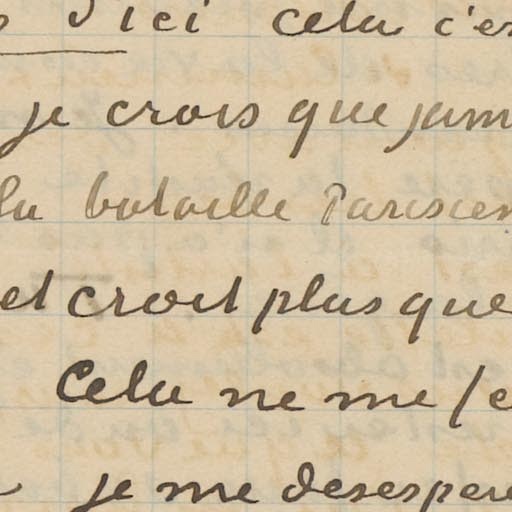 d'ici cela c'es
je crois que jam
la bataille Parisien
et croit plus que
Cela ne me fe
je me desesper